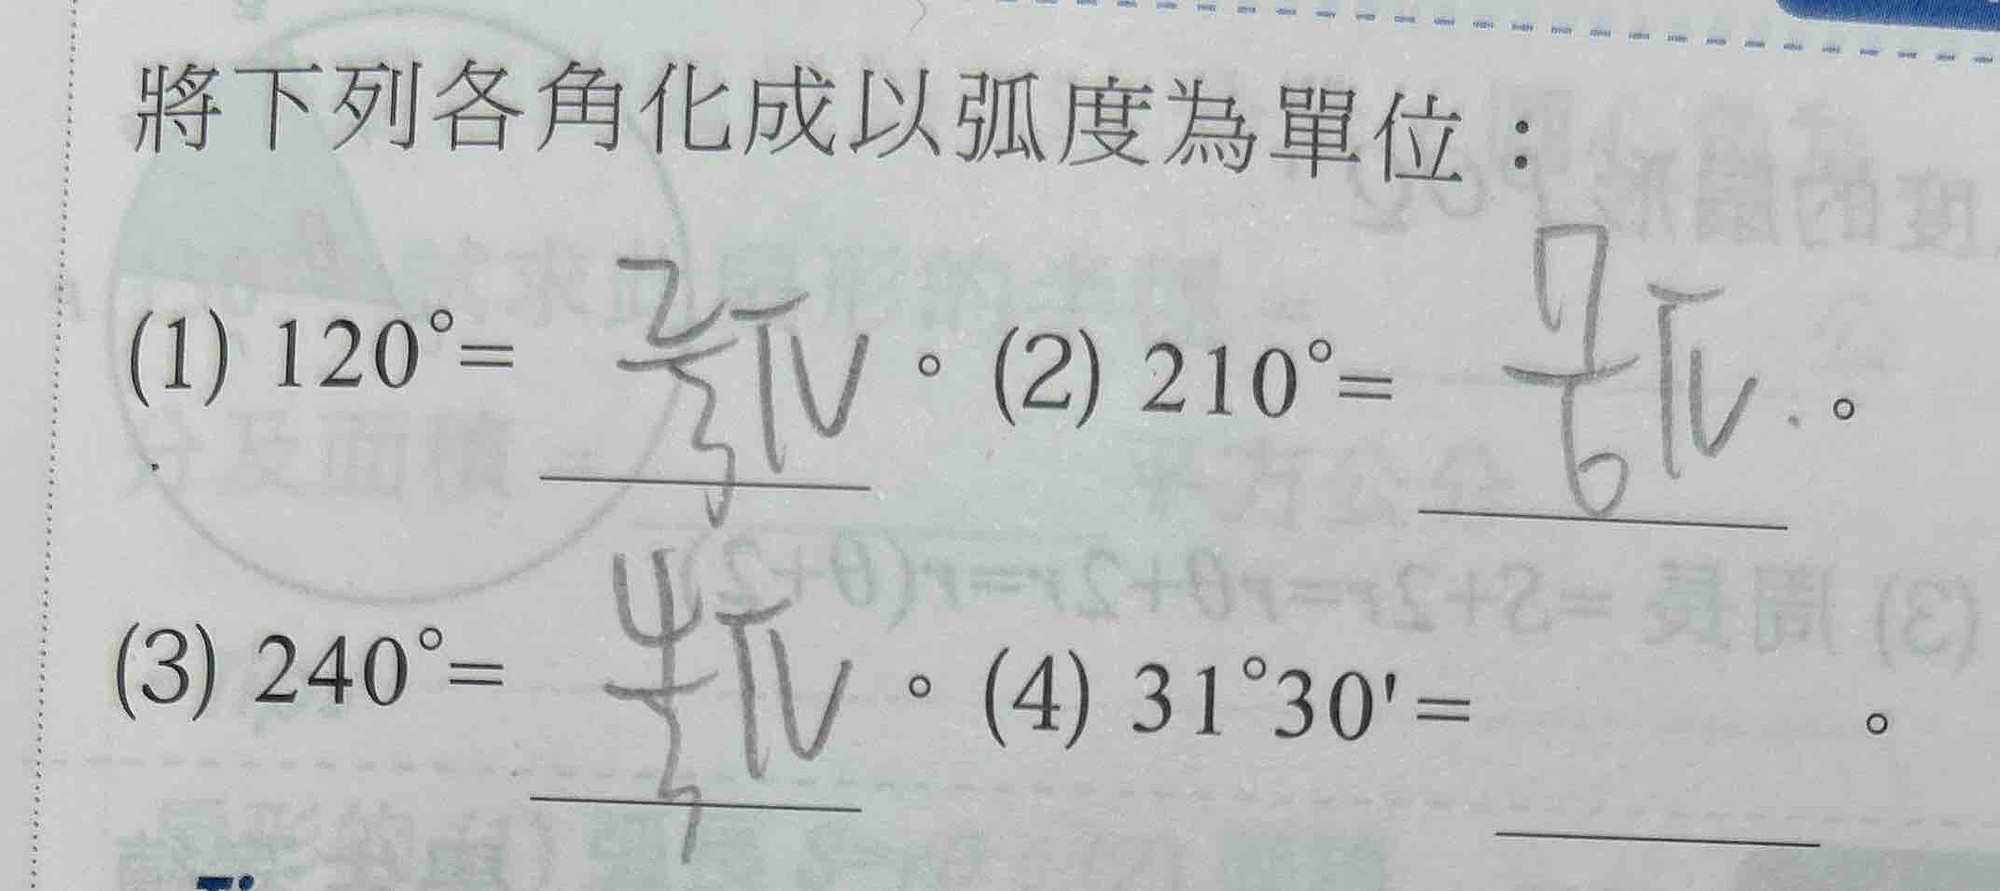 將下列各角化成以弧度為單位：
(1) 120°= 2/3 π 。 (2) 210°= 7/6 π 。
(3) 240°= 4/3 π 。 (4) 31°30'= 。